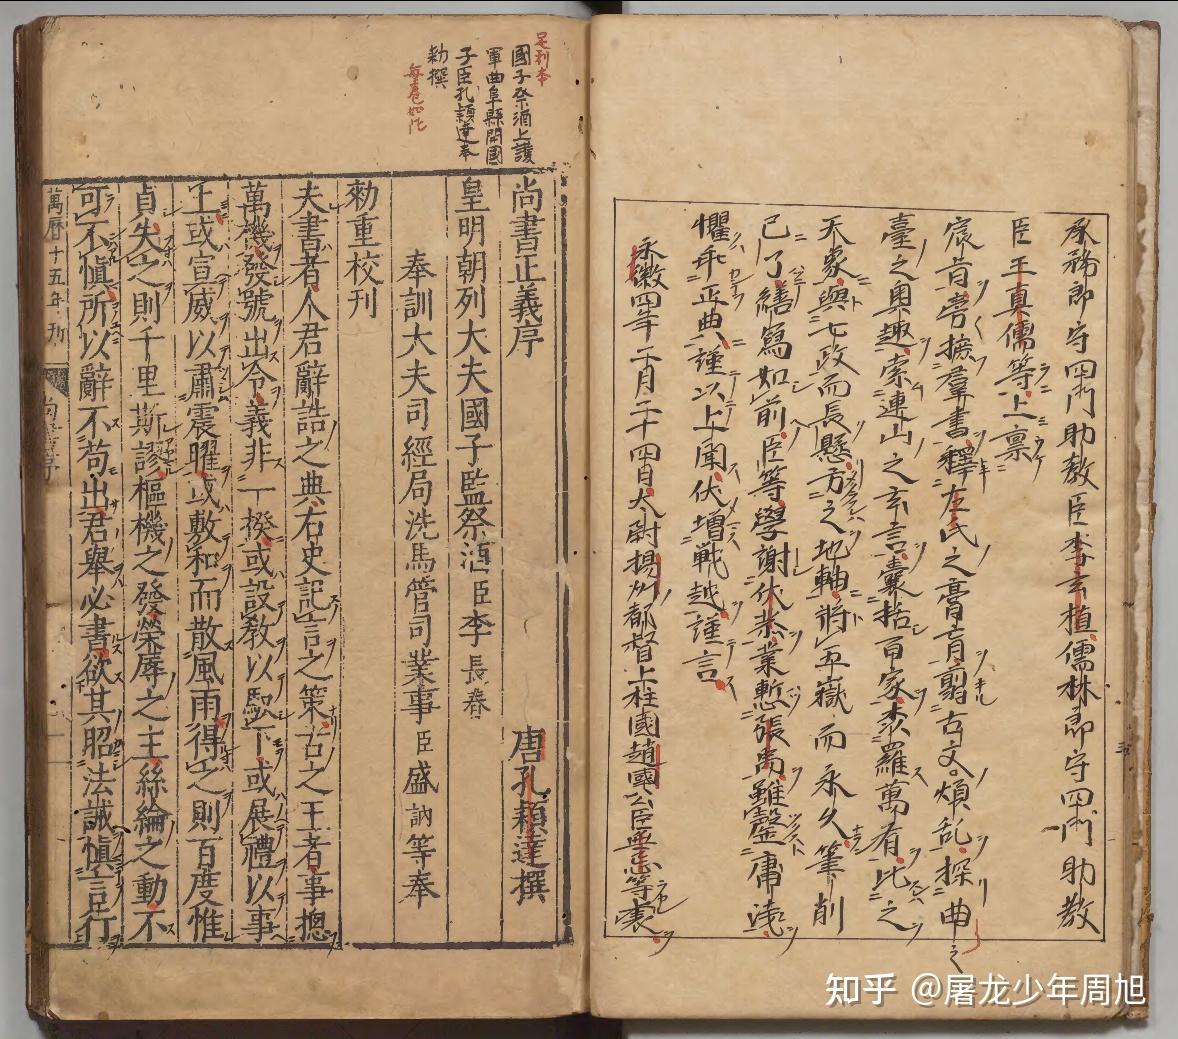 承務郎守四門助教臣李玄植儒林郎守四門助教
臣王真儒等上禀
宸旨旁摭羣書釋左氏之膏肓翦古文之煩乱探曲
臺之奥趣索連山之玄言囊括百家森羅萬有比之
天象與七政而長懸方之地軸將五嶽而永久筆削
已了繕寫如前臣等學謝伏恭業慙張禹雖罄庸淺
懼乖正典謹以上聞伏增戰越謹言
永徽四年二月二十四日太尉揚州都督上柱國趙國公臣無忌等表
足利本
國子祭酒上護
軍曲阜縣開國
子臣孔穎達奉
勅撰
每卷如此
尚書正義序 唐孔穎達撰
皇明朝列大夫國子監祭酒臣李長春
奉訓大夫司經局洗馬管司業事臣盛訥等奉
勅重校刊
夫書者人君辭誥之典右史記言之策古之王者事摠
萬機發號出令義非一揆或設教以馭下或展禮以事
上或宣威以肅震曜或敷和而散風雨得之則百度惟
貞失之則千里斯謬樞機之發榮辱之主絲綸之動不
可不慎所以辭不苟出君舉必書欲其昭法誡慎言行
萬曆十五年刊
尚書序
知乎 @屠龙少年周旭